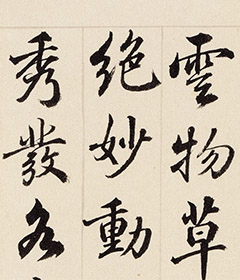 雲物草
絶妙動
秀發各